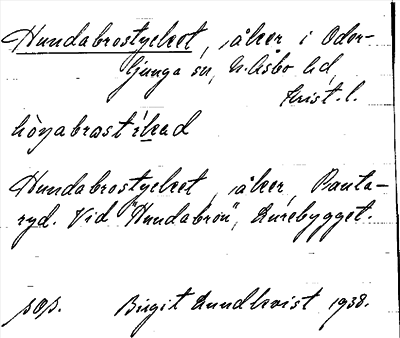 Hundabrostycket, åker i Oder-
ljunga sn, N. Åsbo hd,
Krist. l.
Hundabrostycket, åker, Banta-
ryd. Vid "Hundabron", Lurebygget.
sOs. Birgit Lundkvist 1938.